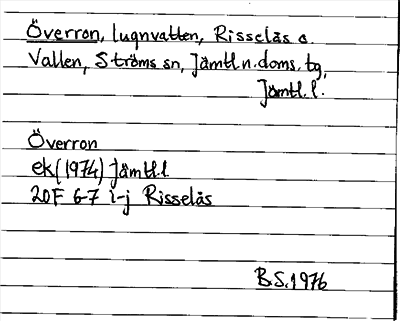 Överron, Lugnvatten, Risselås o.
Vallen, Ströms sn, Jämtl.n.doms.tg,
Jämtl.l.
Överron
ek(1974) Jämtl.l
20F 6-7 i-j Risselås
B.S.1976